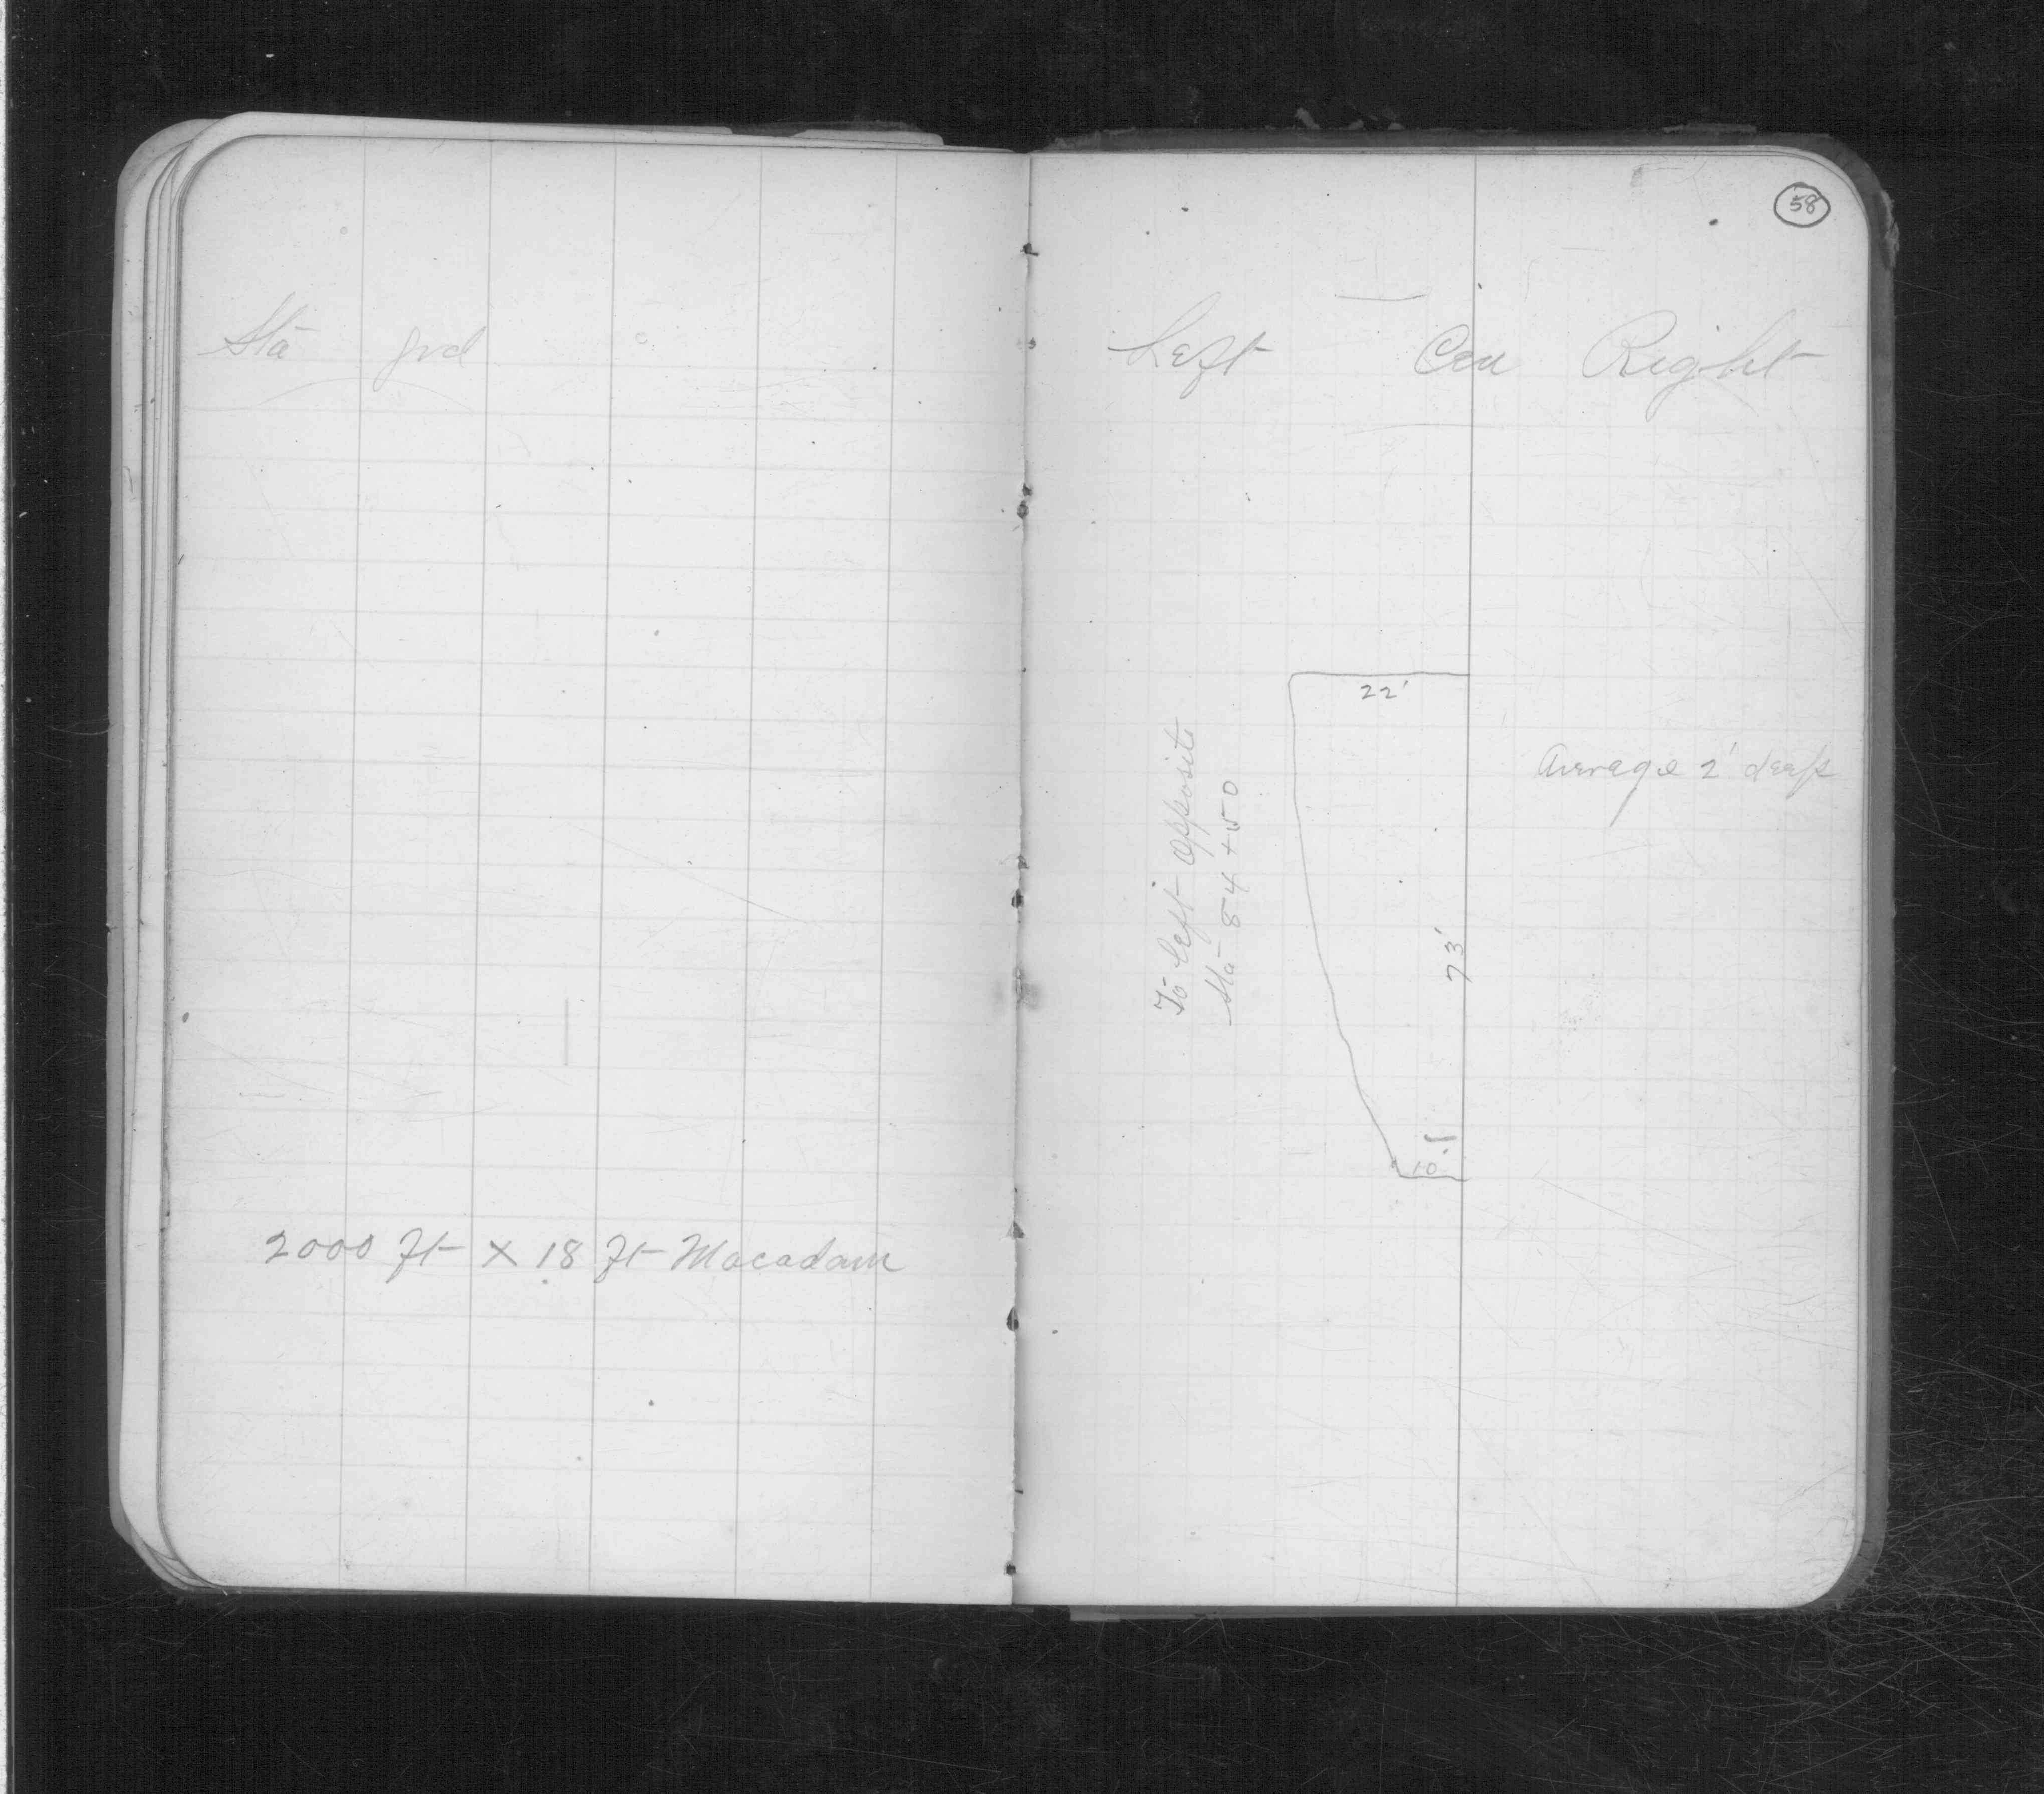 Sta grd
2000 ft × 18 ft Macadam
58
Left Cen Right
22'
Average 2' deep
To Left opposite
Sta 84+50
73'
10'